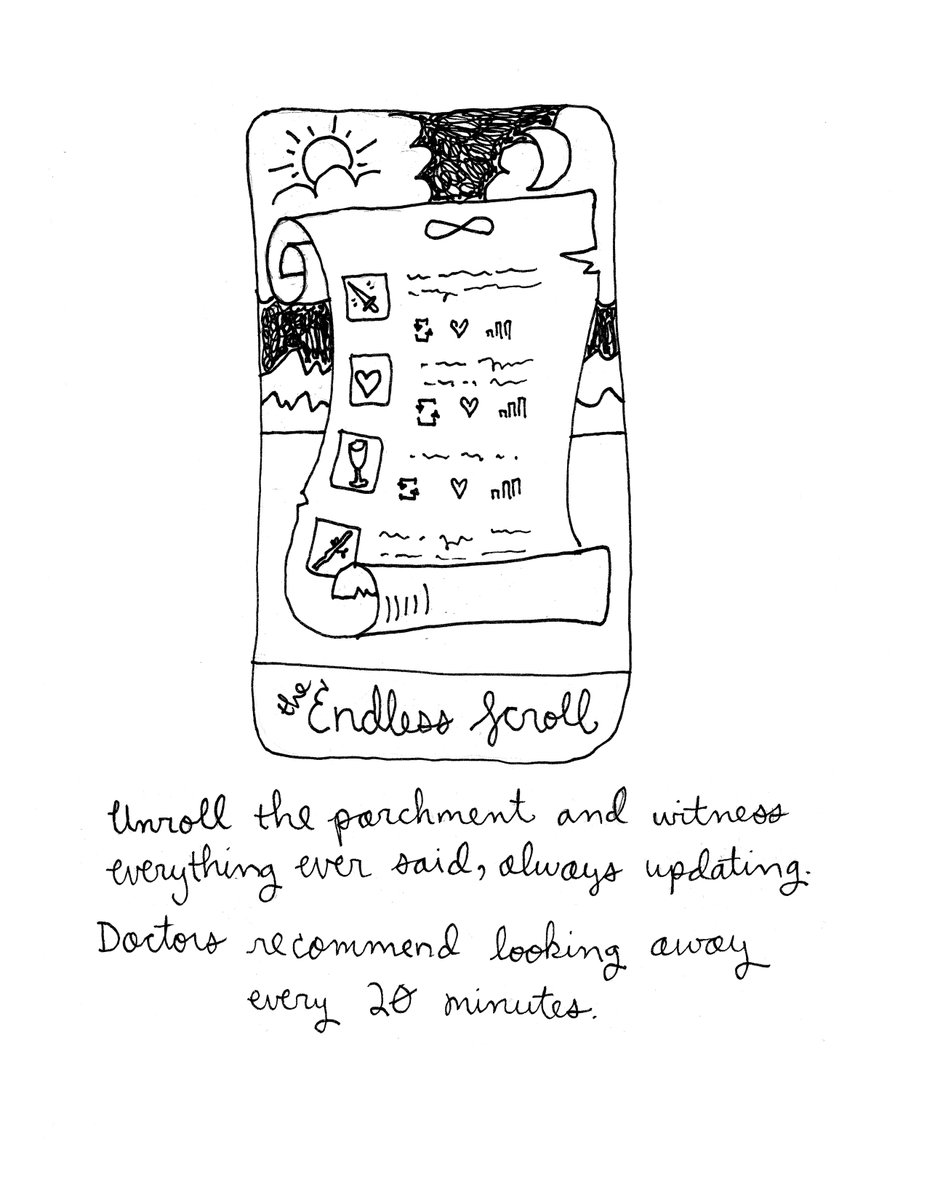 the Endless Scroll
Unroll the parchment and witness
everything ever said, always updating.
Doctors recommend looking away
every 20 minutes.